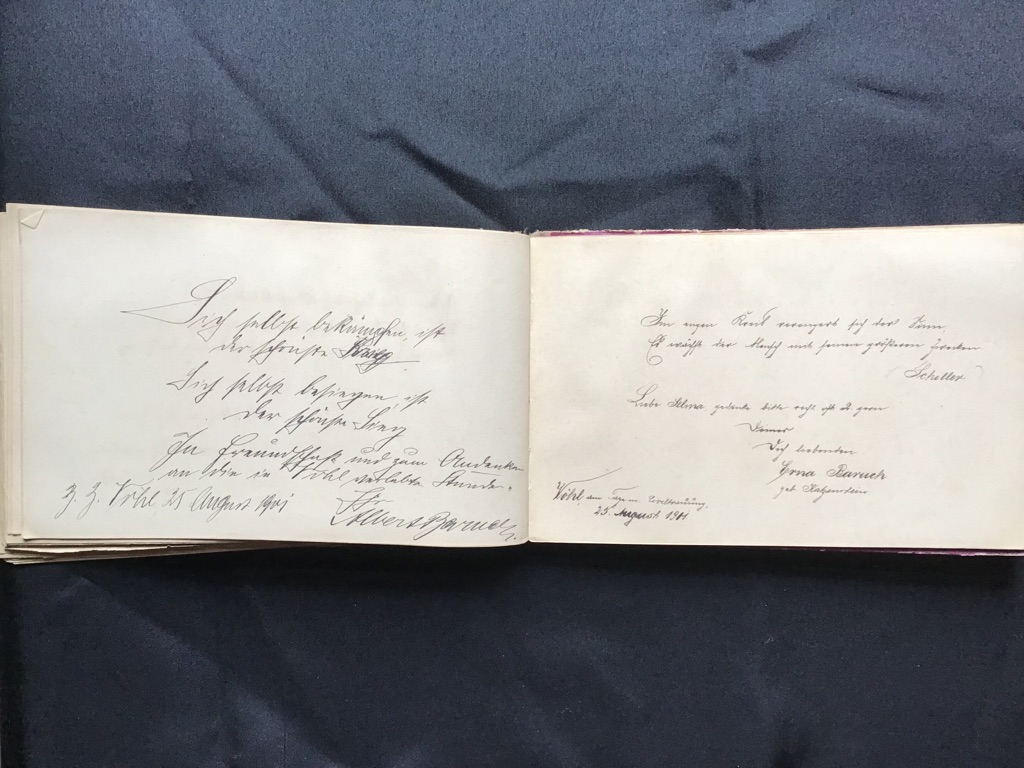 Sich selbst bekämpfen, ist
der schönste Krieg
Sich selbst besiegen, ist
der schönste Sieg
In Freundschaft und zum Andenken
an die in Vöhl verlebte Stunde.
z. Z. Vöhl 25 August 1901
Albert Baruch.
Im engen Kreis verengert sich der Sinn.
Es wächst der Mensch mit seinen größeren Zwecken
(Schiller)
Liebe Selma gedenke bitte recht oft u. gern
Deiner
Dich liebenden
Erna Baruch
geb. Katzenstein
Vöhl am Tage
25. August 1901